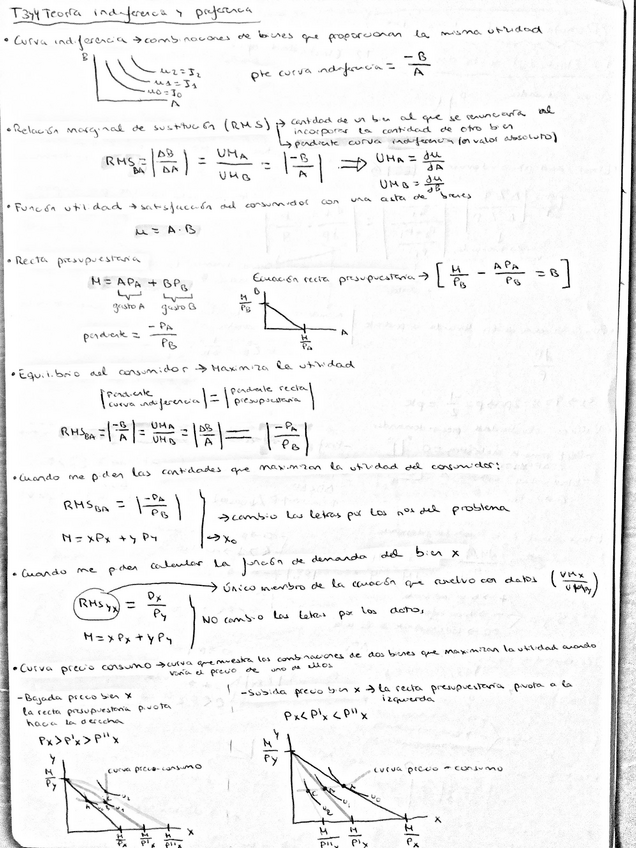 T3y4 Teoría indiferencia y preferencia
• Curva indiferencia → combinaciones de bienes que proporcionan la misma utilidad
B
u2 = I2
u1 = I1
u0 = I0
A
pte curva indiferencia = -B/A
• Relación marginal de sustitución (RMS) → cantidad de un bien al que se renunciaría al
incorporar la cantidad de otro bien
→ pendiente curva indiferencia (en valor absoluto)
RMS BA = |ΔB/ΔA| = UMA/UMB = |-B/A| ⟹ UMA = du/dA
UMB = du/dB
• Función utilidad → satisfacción del consumidor con una cesta de bienes
u = A · B
• Recta presupuestaria
M = APA + BPB
gasto A gasto B
pendiente = -PA/PB
Ecuación recta presupuestaria → [M/PB - APA/PB = B]
B
M/PB
A
M/PA
• Equilibrio del consumidor → Maximiza la utilidad
|Pendiente curva indiferencia| = |Pendiente recta presupuestaria|
RMS BA = |-B/A| = UMA/UMB = |ΔB/ΔA| = |-PA/PB|
• Cuando me piden las cantidades que maximizan la utilidad del consumidor:
RMS BA = |-PA/PB|
M = xPx + yPy
→ cambio las letras por los nos del problema
→ x0
• Cuando me piden calcular la función de demanda del bien x
RMS yx = Px/Py
→ Único miembro de la ecuación que resuelvo con datos (UMx/UMy)
M = xPx + yPy
NO cambio las letras por los datos,
• Curva precio consumo → curva que muestra las combinaciones de dos bienes que maximizan la utilidad cuando
varía el precio de uno de ellos
- Bajada precio bien x
la recta presupuestaria pivota
hacia la derecha
Px > P'x > P''x
y
M/Py
curva precio-consumo
x
M/Px M/P'x M/P''x
- Subida precio bien x → la recta presupuestaria pivota a la
izquierda
Px < P'x < P''x
y
M/Py
curva precio - consumo
x
M/P''x M/P'x M/Px